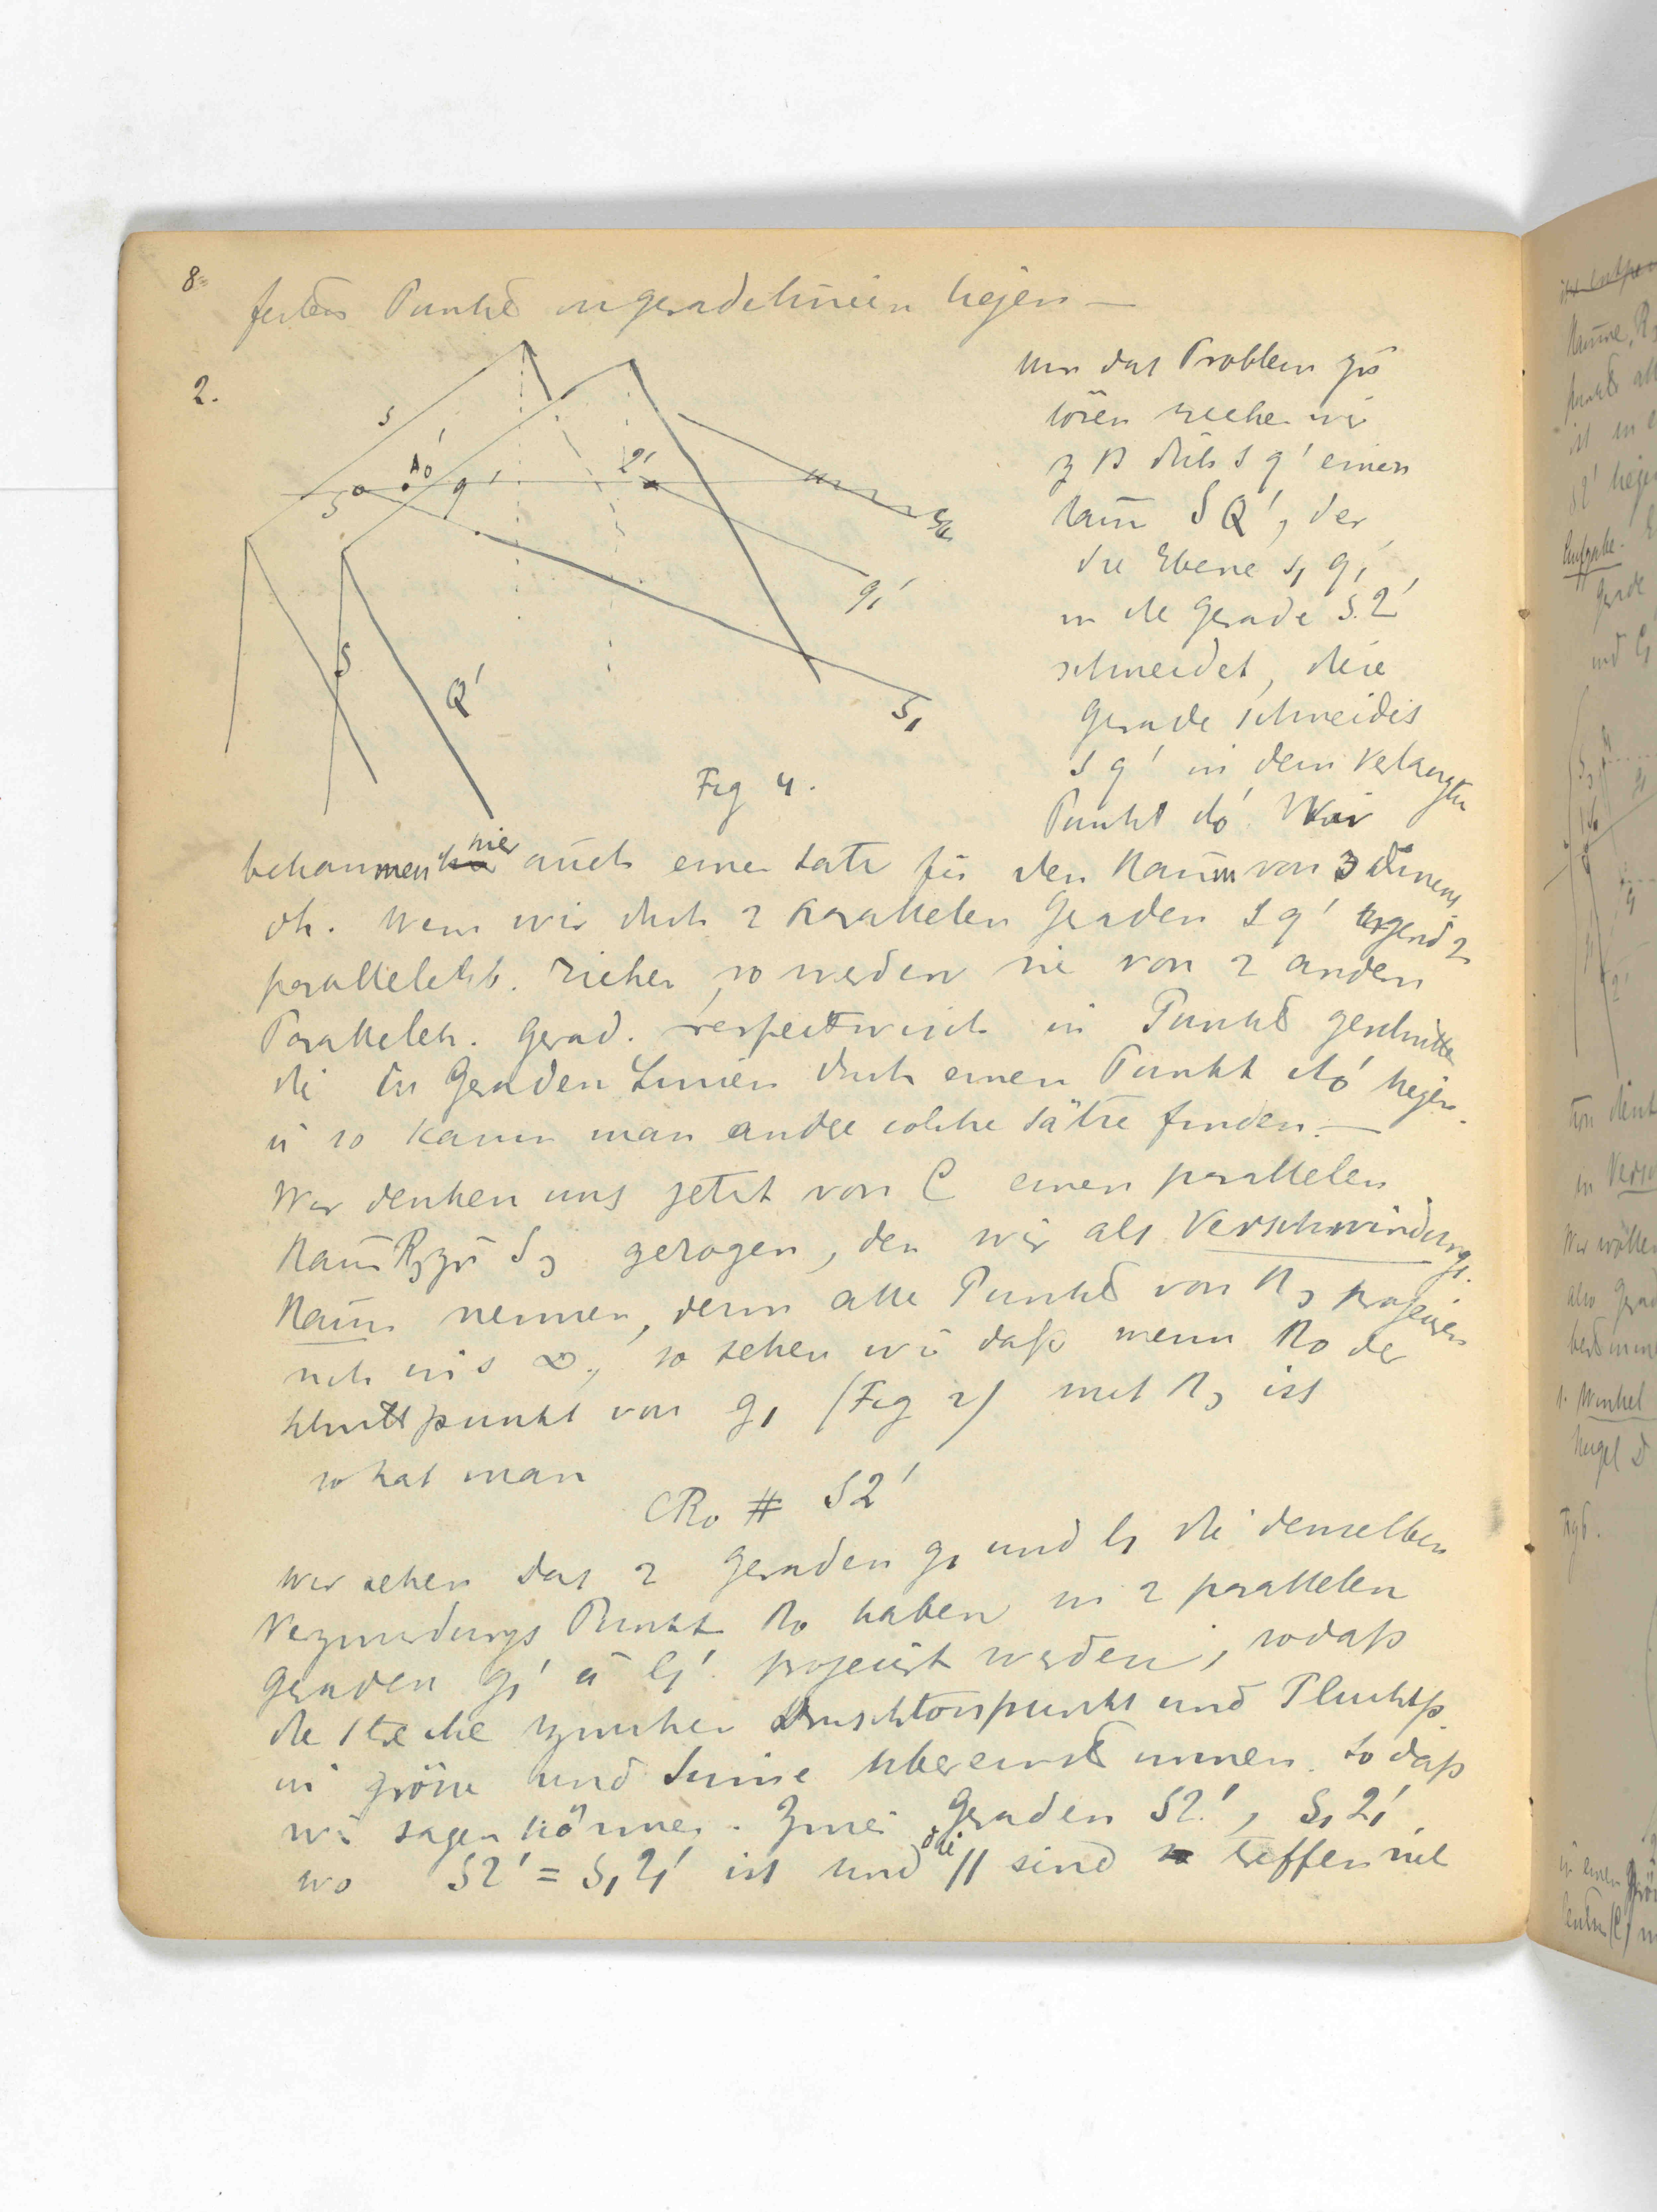 8
festen Punkte in geradelinien liegen —
2.
s
A0'
2'
S
q'
S2
q1'
S
Q'
S1
Fig 4.
Um das Problem zu
lösen suche wir
z B durch s q' einen
Raum S Q', der
die Ebene s1 q1'
in die Gerade S 2'
schneidet, diese
Gerade schneidet
s q' in dem verlangten
Punkt A0'. Wir
bekommen hier auch einen Satz für den Raum von 3 Dimens
oh. Wenn wir durch 2 Parallelen Geraden s q' irgend 2
parallele Eb. ziehen, so werden sie von 2 andern
Parallelen. Gerad. respektwisch in Punkte geschnitten
die in Geraden Linien durch einen Punkt A0' liegen.
ū so kann man andre solche Sätze finden. —
Wir denken uns jetzt von C einen parallelen
Raum R3 zu S3 gezogen, den wir als Verschwindungs.
Raum nennen, denn alle Punkte von R3 projeciren
sich ins ∞, so sehen wir daß wenn R0 der
Schnittpunkt von g1 (Fig 2) mit R3 ist
so hat man
CR0 # S2'
Wir sehen das 2 Geraden g1 und l1 die denselben
Verzwindungs Punkt R0 haben in 2 parallelen
Geraden g1' ū l1' projecirt werden, sodaß
die Strecke zwischen Durschtosspunkt und Fluchtp.
in Grösse und Sinne übereinstimmen. So daß
wir sagen können. Zwei Geraden S2', S1 21'
wo S2' = S1 21' ist und die // sind treffen sich